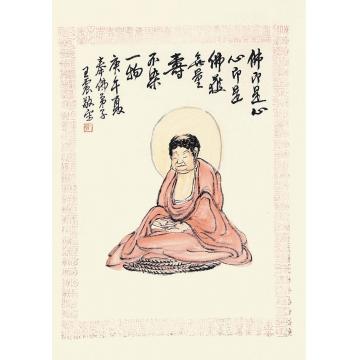 佛即是心
心即是
佛說
無量
壽
不染
一物
庚午夏
奉佛弟子
王震敬寫